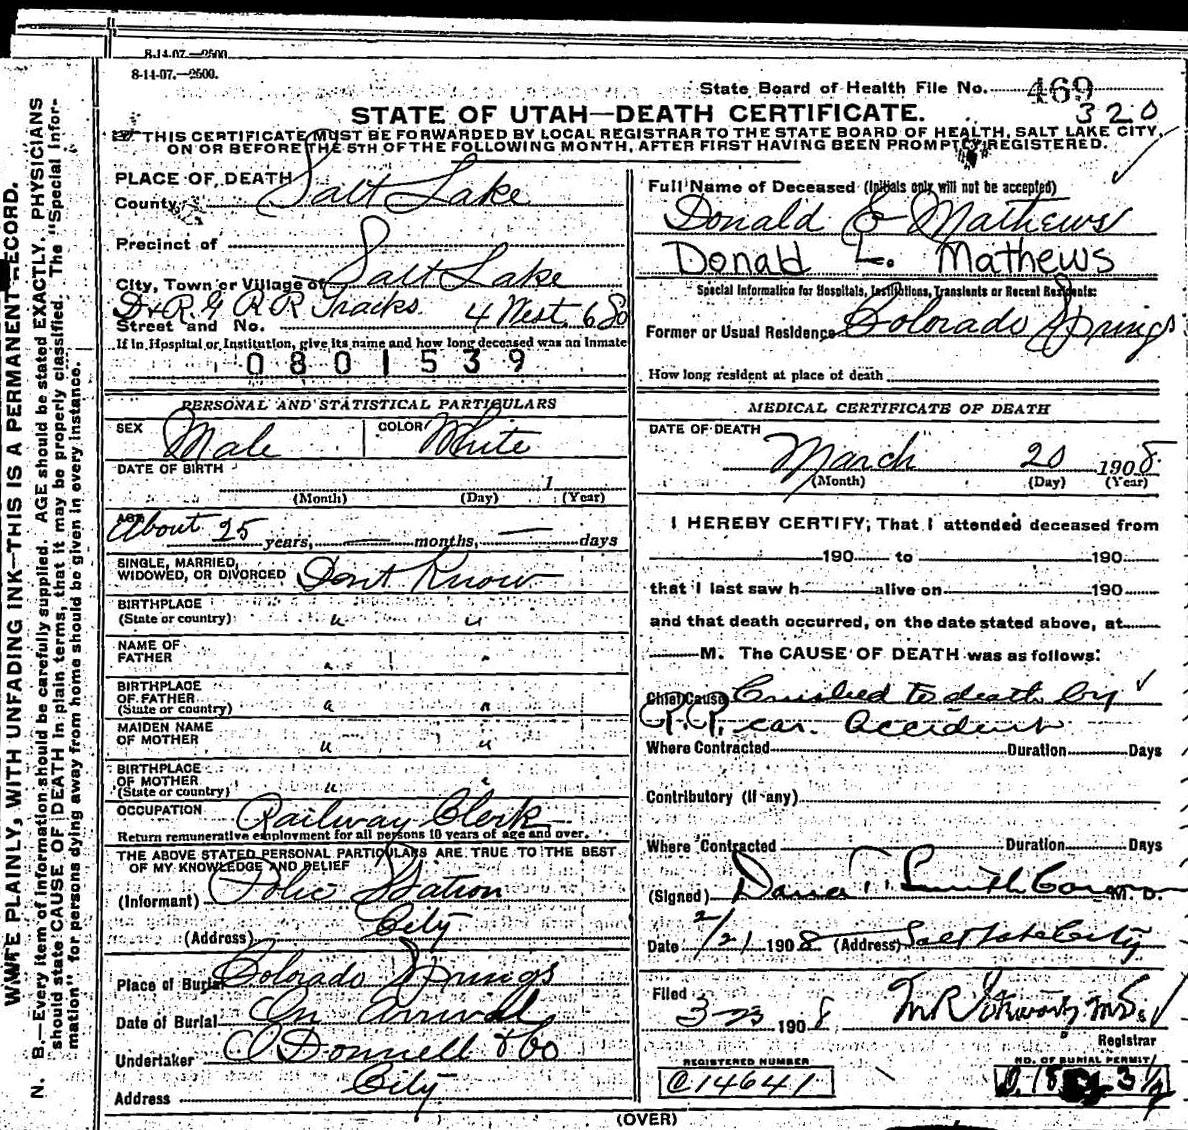 8-14-07.—2500.
8-14-07.—2500.
State Board of Health File No. 469
320
STATE OF UTAH—DEATH CERTIFICATE.
THIS CERTIFICATE MUST BE FORWARDED BY LOCAL REGISTRAR TO THE STATE BOARD OF HEALTH, SALT LAKE CITY,
ON OR BEFORE THE 5TH OF THE FOLLOWING MONTH, AFTER FIRST HAVING BEEN PROMPTLY REGISTERED.
PLACE OF DEATH
County Salt Lake
Precinct of
City, Town or Village of Salt Lake
D & R. G R R Tracks. 4 West. 6 So
Street and No.
If in Hospital or Institution, give its name and how long deceased was an Inmate
0801539
PERSONAL AND STATISTICAL PARTICULARS
SEX Male COLOR White
DATE OF BIRTH
1
(Month) (Day) (Year)
AGE About 25 years, — months, — days
SINGLE, MARRIED,
WIDOWED, OR DIVORCED Dont Know
BIRTHPLACE
(State or country) " "
NAME OF
FATHER " "
BIRTHPLACE
OF FATHER
(State or country) " "
MAIDEN NAME
OF MOTHER " "
BIRTHPLACE
OF MOTHER
(State or country) " "
OCCUPATION Railway Clerk
Return remunerative employment for all persons 10 years of age and over.
THE ABOVE STATED PERSONAL PARTICULARS ARE TRUE TO THE BEST
OF MY KNOWLEDGE AND BELIEF
(Informant) Police Station
(Address) City
Place of Burial Colorado Springs
Date of Burial On Arrival
Undertaker O Donnell & Co
Address City
Full Name of Deceased (Initials only will not be accepted)
Donald E Mathews
Donald L. Mathews
Special Information for Hospitals, Institutions, Transients or Recent Residents:
Former or Usual Residence Colorado Springs
How long resident at place of death
MEDICAL CERTIFICATE OF DEATH
DATE OF DEATH
March 20 1908
(Month) (Day) (Year)
I HEREBY CERTIFY, That I attended deceased from
190 to 190
that I last saw h alive on 190
and that death occurred, on the date stated above, at
M. The CAUSE OF DEATH was as follows:
Chief Cause Crushed to death by
R. R. car. Accident
Where Contracted Duration Days
Contributory (if any)
Where Contracted Duration Days
(Signed) Dana T. Smith Coroner M. D.
Date 2/21 1908 (Address) Salt Lake City
Filed
3-23 1908 M R Stewart M.D.
Registrar
REGISTERED NUMBER
C14641
NO. OF BURIAL PERMIT
(OVER)
WRITE PLAINLY, WITH UNFADING INK—THIS IS A PERMANENT RECORD.
N. B.—Every item of information should be carefully supplied. AGE should be stated EXACTLY. PHYSICIANS
should state CAUSE OF DEATH in plain terms, that it may be properly classified. The "Special Infor-
mation" for persons dying away from home should be given in every instance.